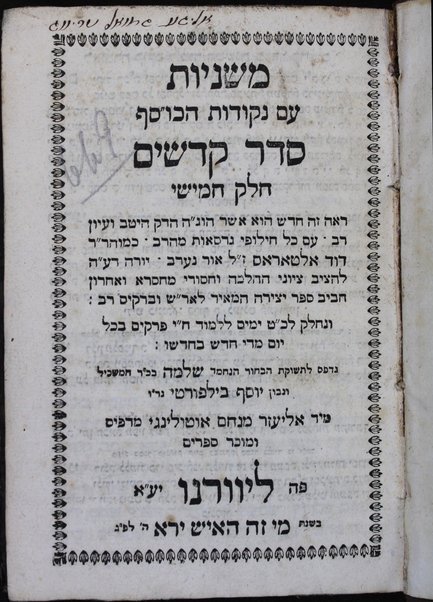 משניות
עם נקודות הכו״סף
סדר קדשים
חלק חמישי
ראה זה חדש הוא אשר הוג״ה הדק היטב ועיון
רב ׃ עם כל חילופי גרסאות מהרב ׃ כמוהר״ר
דוד אלטאראס ז״ל אור נערב ׃ יורה דע״ה
להציב ציוני ההלכה וחסורי מחסרא ואחרון
חביב ספר יצירה המאיר לאר״ש וברקיס רב ׃
ונחלק לכ״ט ימים ללמוד ח״י פרקים בכל
יום מדי חדש בחדשו ׃
נדפס לתשוקת הבחור הנחמד שלמה בכ״ר המשכיל
ונבון יוסף בילפורטי נר״ו
מ״ד אליעזר מנחם אוטולינגי מדפיס
ומוכר ספרים
פה ליוורנו יע״א
בשנת מי זה האיש ירא ה׳ לפ״ג